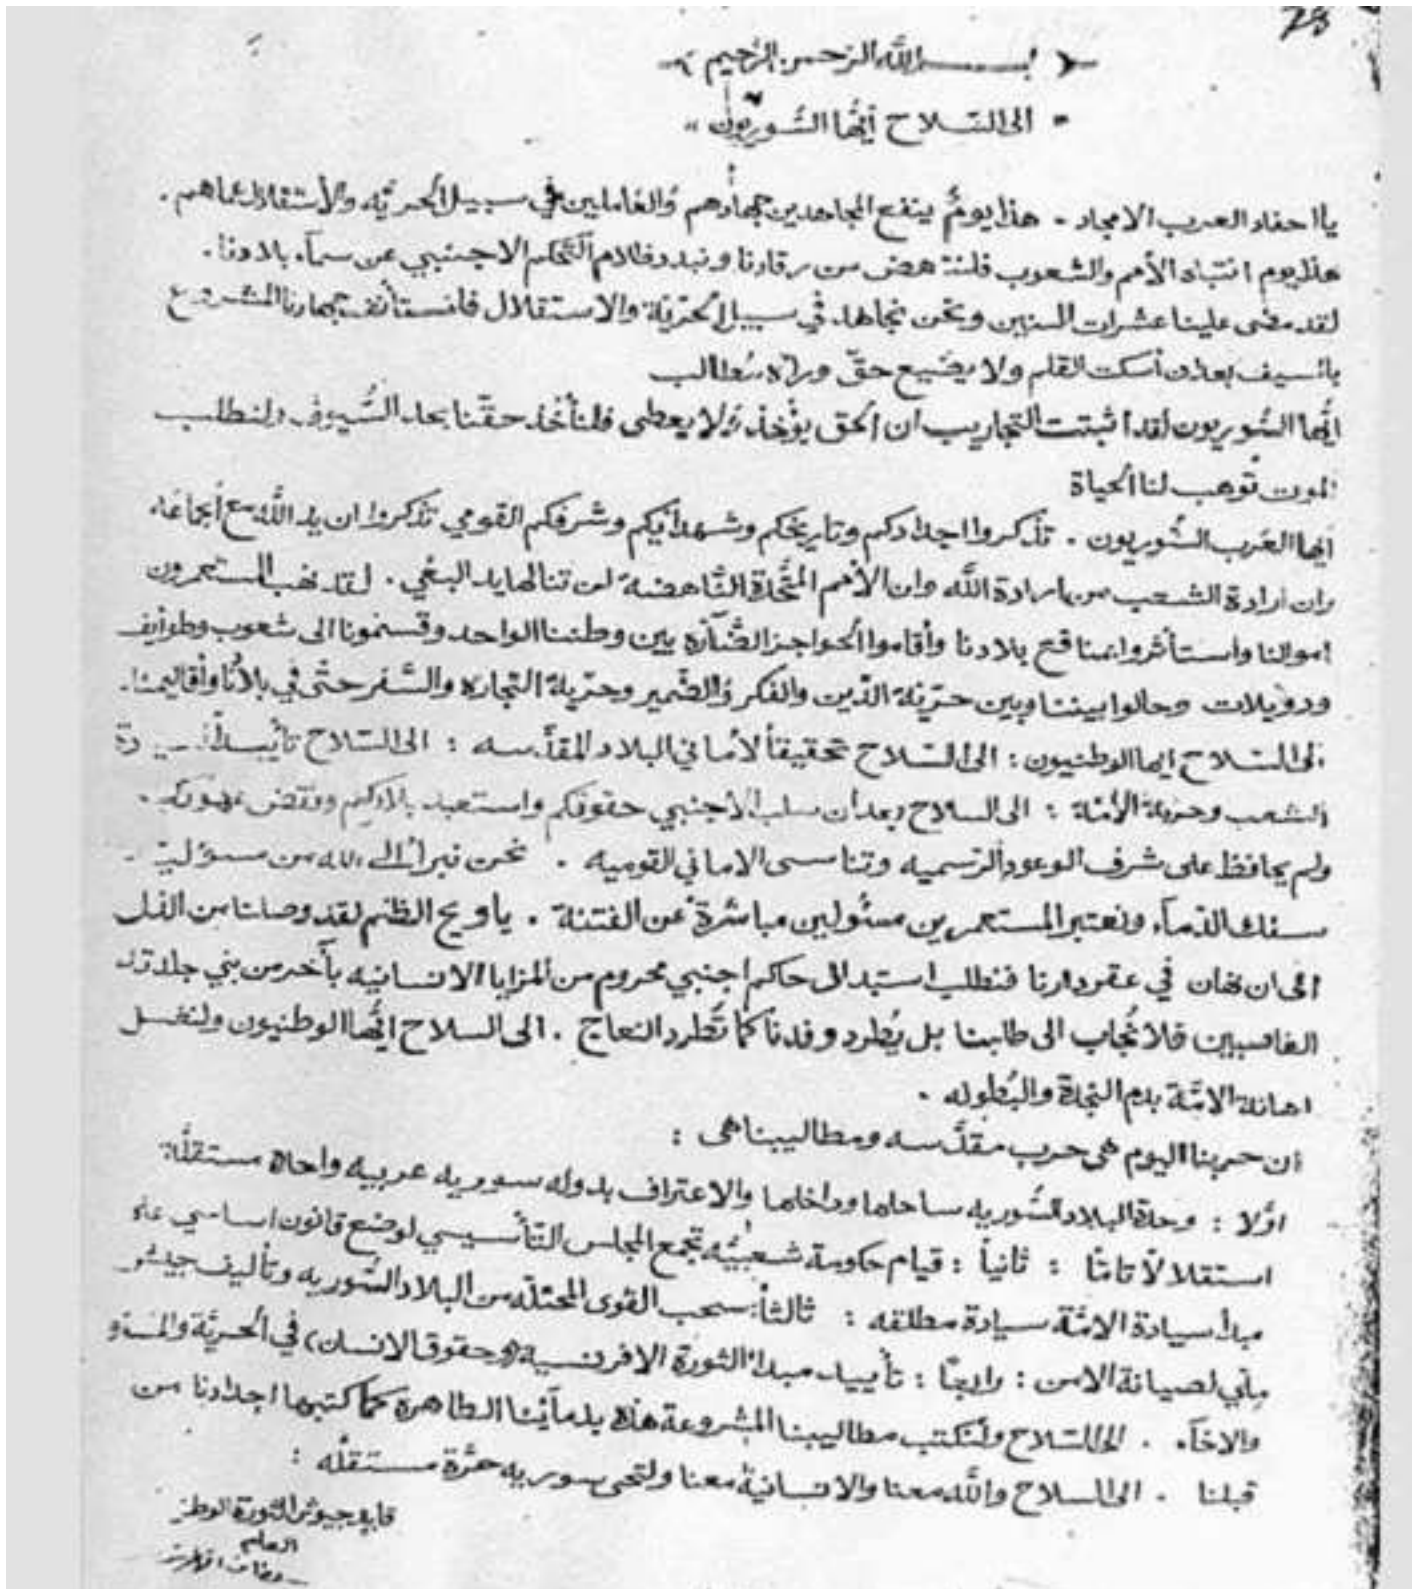 73
بسم الله الرحمن الرحيم
" الى السّلاح أيُّها السُّوريّون "
يا احفاد العرب الامجاد . هذا يومٌ ينفع المجاهدين جهادُهم وُالعاملين في سبيل الحريّه والأستقلال عملهم .
هذا يوم انتباه الأمم والشعوب فلننهض من رقادنا ونبدد ظلام التَّحكم الاجنبي عن سمآء بلادنا .
لقد مضى علينا عشرات السنين ونحن نجاهد في سبيل الحرّيّة والاستقلال فلنستأنف جهادنا المشروع
بالسيف بعد ان أسكت القلم ولا يضيع حقّ ورآه مُطالب
ايُّها السُّوريون لقد اثبتت التجاريب ان الحق يؤخذ وُلا يعطى فلنأخذ حقّنا بحد السُّيوف ولنطلب
الموت تُوهب لنا الحياة
ايها العَرب السُّوريون . تذكروا اجدادكم وتاريخكم وشهدائيكم وشرفكم القومي تذكروا ان يد اللَّه مع الجماعَه
وان ارادة الشعب من ارادة اللَّه وان الأمم المتَّحدة النَّاهضة لن تنالها يد البغي . لقد نهب المستعمرون
اموالنا واستأثروا بمنافع بلادنا وأقاموا الحواجز الضَّآرّه بين وطننا الواحد وقسّمونا الى شعوب وطوائف
ودويلات وحالوا بيننا وبين حرّيّة الدّين والفكر وُالضّمير وحرّية التجاره والسَّفر حتَّى في بلادنا وأقاليمنا .
الى السّلاح ايها الوطنيون : الى السّلاح تحقيقاً لأماني البلاد المقدَّسه : الى السّلاح تأييداً لسيادة
الشعب وحرية الأمّة : الى السلاح بعد أن سلب الأجنبي حقوقكم واستعبد بلادكم ونقض عهودكم .
ولم يحافظ على شرف الوعود الرّسميه وتناسى الاماني القوميه . نحن نبرأ الى الله من مسؤلية
سفك الدّمآء ونعتبر المستعمرين مسئولين مباشرة عن الفتنة . يا ويح الظلم لقد وصلنا من الذل
الى ان نهان في عقر دارنا فنطلب استبدال حاكم اجنبي محروم من المزايا الانسانيه بآخر من بني جلدته
الغاصبين فلا نُجاب الى طلبنا بل يُطرد وفدنا كما تُطرد النعاج . الى السلاح ايُّها الوطنيون ولنغسل
اهانة الامّة بدم النجدة والبُطوله .
ان حربنا اليوم هى حرب مقدَّسه ومطاليبنا هى :
اوّلا : وحدة البلاد السُّوريه ساحلها وداخلها والاعتراف بدوله سوريه عربيه واحدة مستقلَّة
استقلالاً تامّا : ثانياً : قيام حكومة شعبيَّه تجمع المجلس التّأسيسي لوضع قانون اساسي على
مبدأ سيادة الامّة سيادة مطلقه : ثالثاً : سحب القوى المحتلّه من البلاد السُّوريه وتأليف جيش
ملّي لصيانة الامن : رابعًا : تأييد مبدأ الثورة الافرنسية (وحقوق الانسان) في الحريّة والمساواة
والاخآء . الى السّلاح ولنكتب مطاليبنا المشروعة هذه بدمآئنا الطاهرة كما كتبها اجدادنا من
قبلنا . الى السلاح واللَّه معنا والانسانية معنا ولتحى سوريه حرَّة مستقلّه :
قايد جيوش الثورة الوطنية
العام